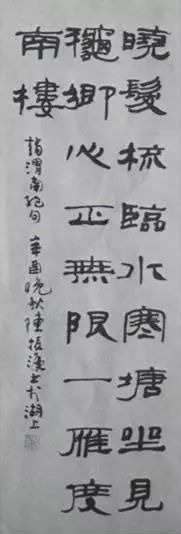 曉髮梳臨水寒塘坐見
穐鄉心正無限一雁度
南樓
趙渭南絕句 辛酉晚秋陳振濂書於湖上